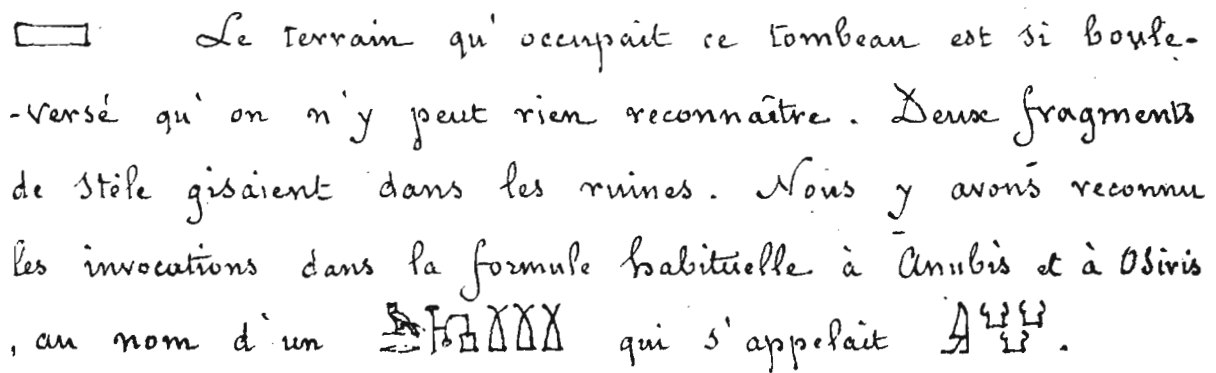 Le terrain qu'occupait ce tombeau est si boule-
-versé qu'on n'y peut rien reconnaître. Deux fragments
de stèle gisaient dans les ruines. Nous y avons reconnu
les invocations dans la formule habituelle à Anubis et à Osiris
, au nom d'un qui s'appelait .